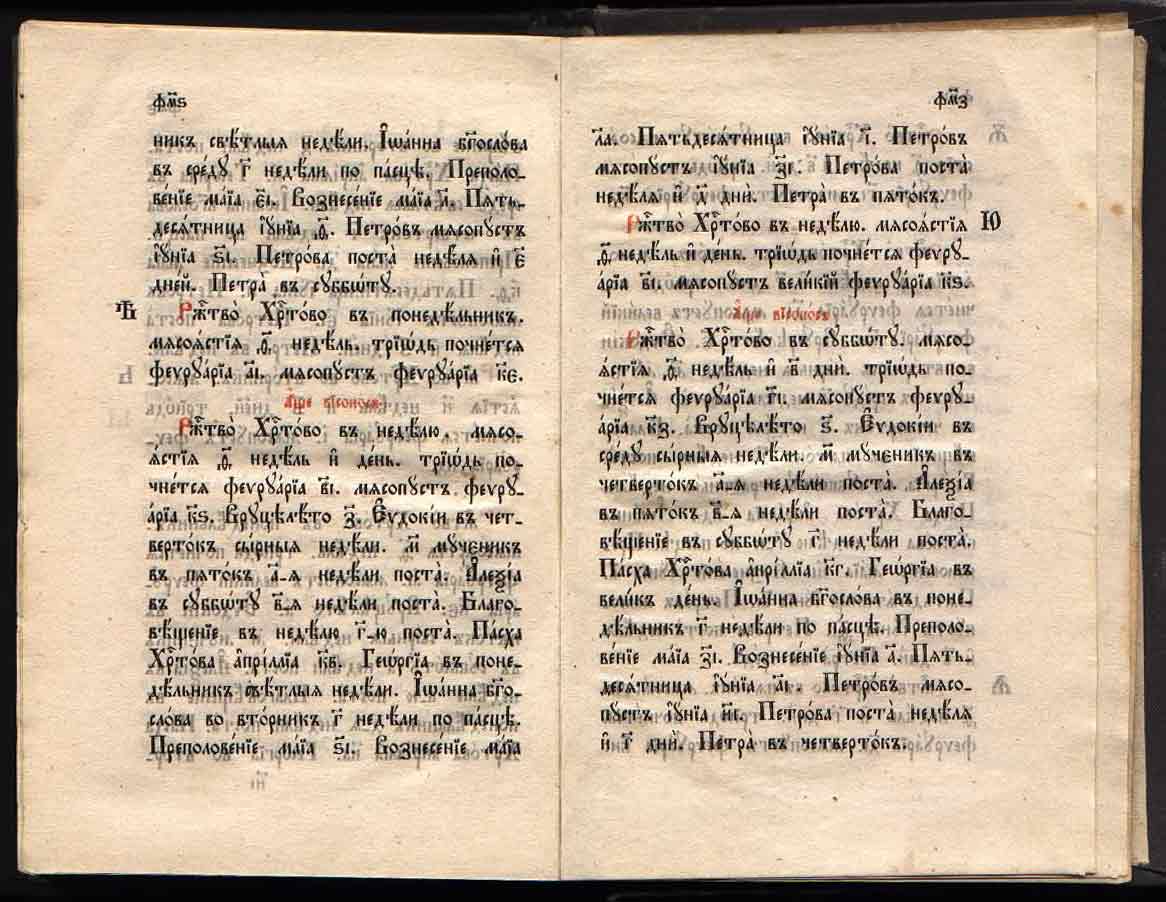 фм҃ѕ
никъ свѣ́тлыѧ недѣ́ли. І҆ѡа́нна бг҃осло́ва
въ сре́дꙋ г҃ недѣ́ли по па́сцѣ. Преполо-
ве́нїе ма́їа є҃і. Вознесе́нїе ма́їа л҃. Пѧть-
десѧ́тница і҆ꙋ́нїа ѳ҃. Петро́въ мѧсопꙋ́стъ
і҆ꙋ́нїа ѕ҃і. Петро́ва поста̀ недѣ́лѧ и҆ є҃
дне́й. Петра̀ въ сꙋббѡ́тꙋ.
Ч҃
Ржⷭ҇тво̀ Хрⷭ҇то́во въ понедѣ́льникъ.
мѧсоѧ́стїѧ ѳ҃ недѣ́ль. трїѡ́дь почне́тсѧ
феѵрꙋа́рїа а҃і. мѧсопꙋ́стъ феѵрꙋа́рїа к҃є.
а҆́ще вїсоко́съ
Ржⷭ҇тво̀ Хрⷭ҇то́во въ недѣ́лю. мѧсо-
ѧ́стїѧ ѳ҃ недѣ́ль и҆ де́нь. трїѡ́дь по-
чне́тсѧ феѵрꙋа́рїа в҃і. мѧсопꙋ́стъ феѵрꙋ-
а́рїа к҃ѕ. Врꙋцѣлѣ́то з҃. Є҆ѵдокі́и въ чет-
верто́къ сы́рныѧ недѣ́ли. м҃ мꙋ́ченикъ
въ пѧто́къ а҃-ѧ недѣ́ли поста̀. А҆леѯі́а
въ сꙋббѡ́тꙋ в҃-ѧ недѣ́ли поста̀. Благо-
вѣ́щенїе въ недѣ́лю г҃-ю поста̀. Па́сха
Хрⷭ҇то́ва а҆прі́ллїа к҃в. Геѡ́ргїа въ поне-
дѣ́льникъ свѣ́тлыѧ недѣ́ли. І҆ѡа́нна бг҃о-
сло́ва во вто́рникъ г҃ недѣ́ли по па́сцѣ.
Преполове́нїе ма́їа ѕ҃і. Вознесе́нїе ма́їа
фм҃з
л҃а. Пѧтьдесѧ́тница і҆ꙋ́нїа і҃. Петро́въ
мѧсопꙋ́стъ і҆ꙋ́нїа з҃і. Петро́ва поста̀
недѣ́лѧ и҆ д҃ дни̑. Петра̀ въ пѧто́къ.
Ю
Ржⷭ҇тво̀ Хрⷭ҇то́во въ недѣ́лю. мѧсоѧ́стїѧ
ѳ҃ недѣ́ль и҆ де́нь. трїѡ́дь почне́тсѧ феѵрꙋ-
а́рїа в҃і. мѧсопꙋ́стъ вели́кїй феѵрꙋа́рїа к҃ѕ.
а҆́ще вїсоко́съ
Ржⷭ҇тво̀ Хрⷭ҇то́во въ сꙋббѡ́тꙋ. мѧсо-
ѧ́стїѧ ѳ҃ недѣ́ль и҆ в҃ дни̑. трїѡ́дь по-
чне́тсѧ феѵрꙋа́рїа г҃і. мѧсопꙋ́стъ феѵрꙋ-
а́рїа к҃з. Врꙋцѣлѣ́то ѕ҃. Є҆ѵдокі́и въ
сре́дꙋ сы́рныѧ недѣ́ли. м҃ мꙋ́ченикъ въ
четверто́къ а҃-ѧ недѣ́ли поста̀. А҆леѯі́а
въ пѧто́къ в҃-ѧ недѣ́ли поста̀. Благо-
вѣ́щенїе въ сꙋббѡ́тꙋ г҃ недѣ́ли поста̀.
Па́сха Хрⷭ҇то́ва а҆прі́ллїа к҃г. Геѡ́ргїа въ
вели́къ де́нь. І҆ѡа́нна бг҃осло́ва въ поне-
дѣ́льникъ г҃ недѣ́ли по па́сцѣ. Преполо-
ве́нїе ма́їа з҃і. Вознесе́нїе і҆ꙋ́нїа а҃. Пѧть-
десѧ́тница і҆ꙋ́нїа а҃і. Петро́въ мѧсо-
пꙋ́стъ і҆ꙋ́нїа и҃і. Петро́ва поста̀ недѣ́лѧ
и҆ г҃ дни̑. Петра̀ въ четверто́къ.